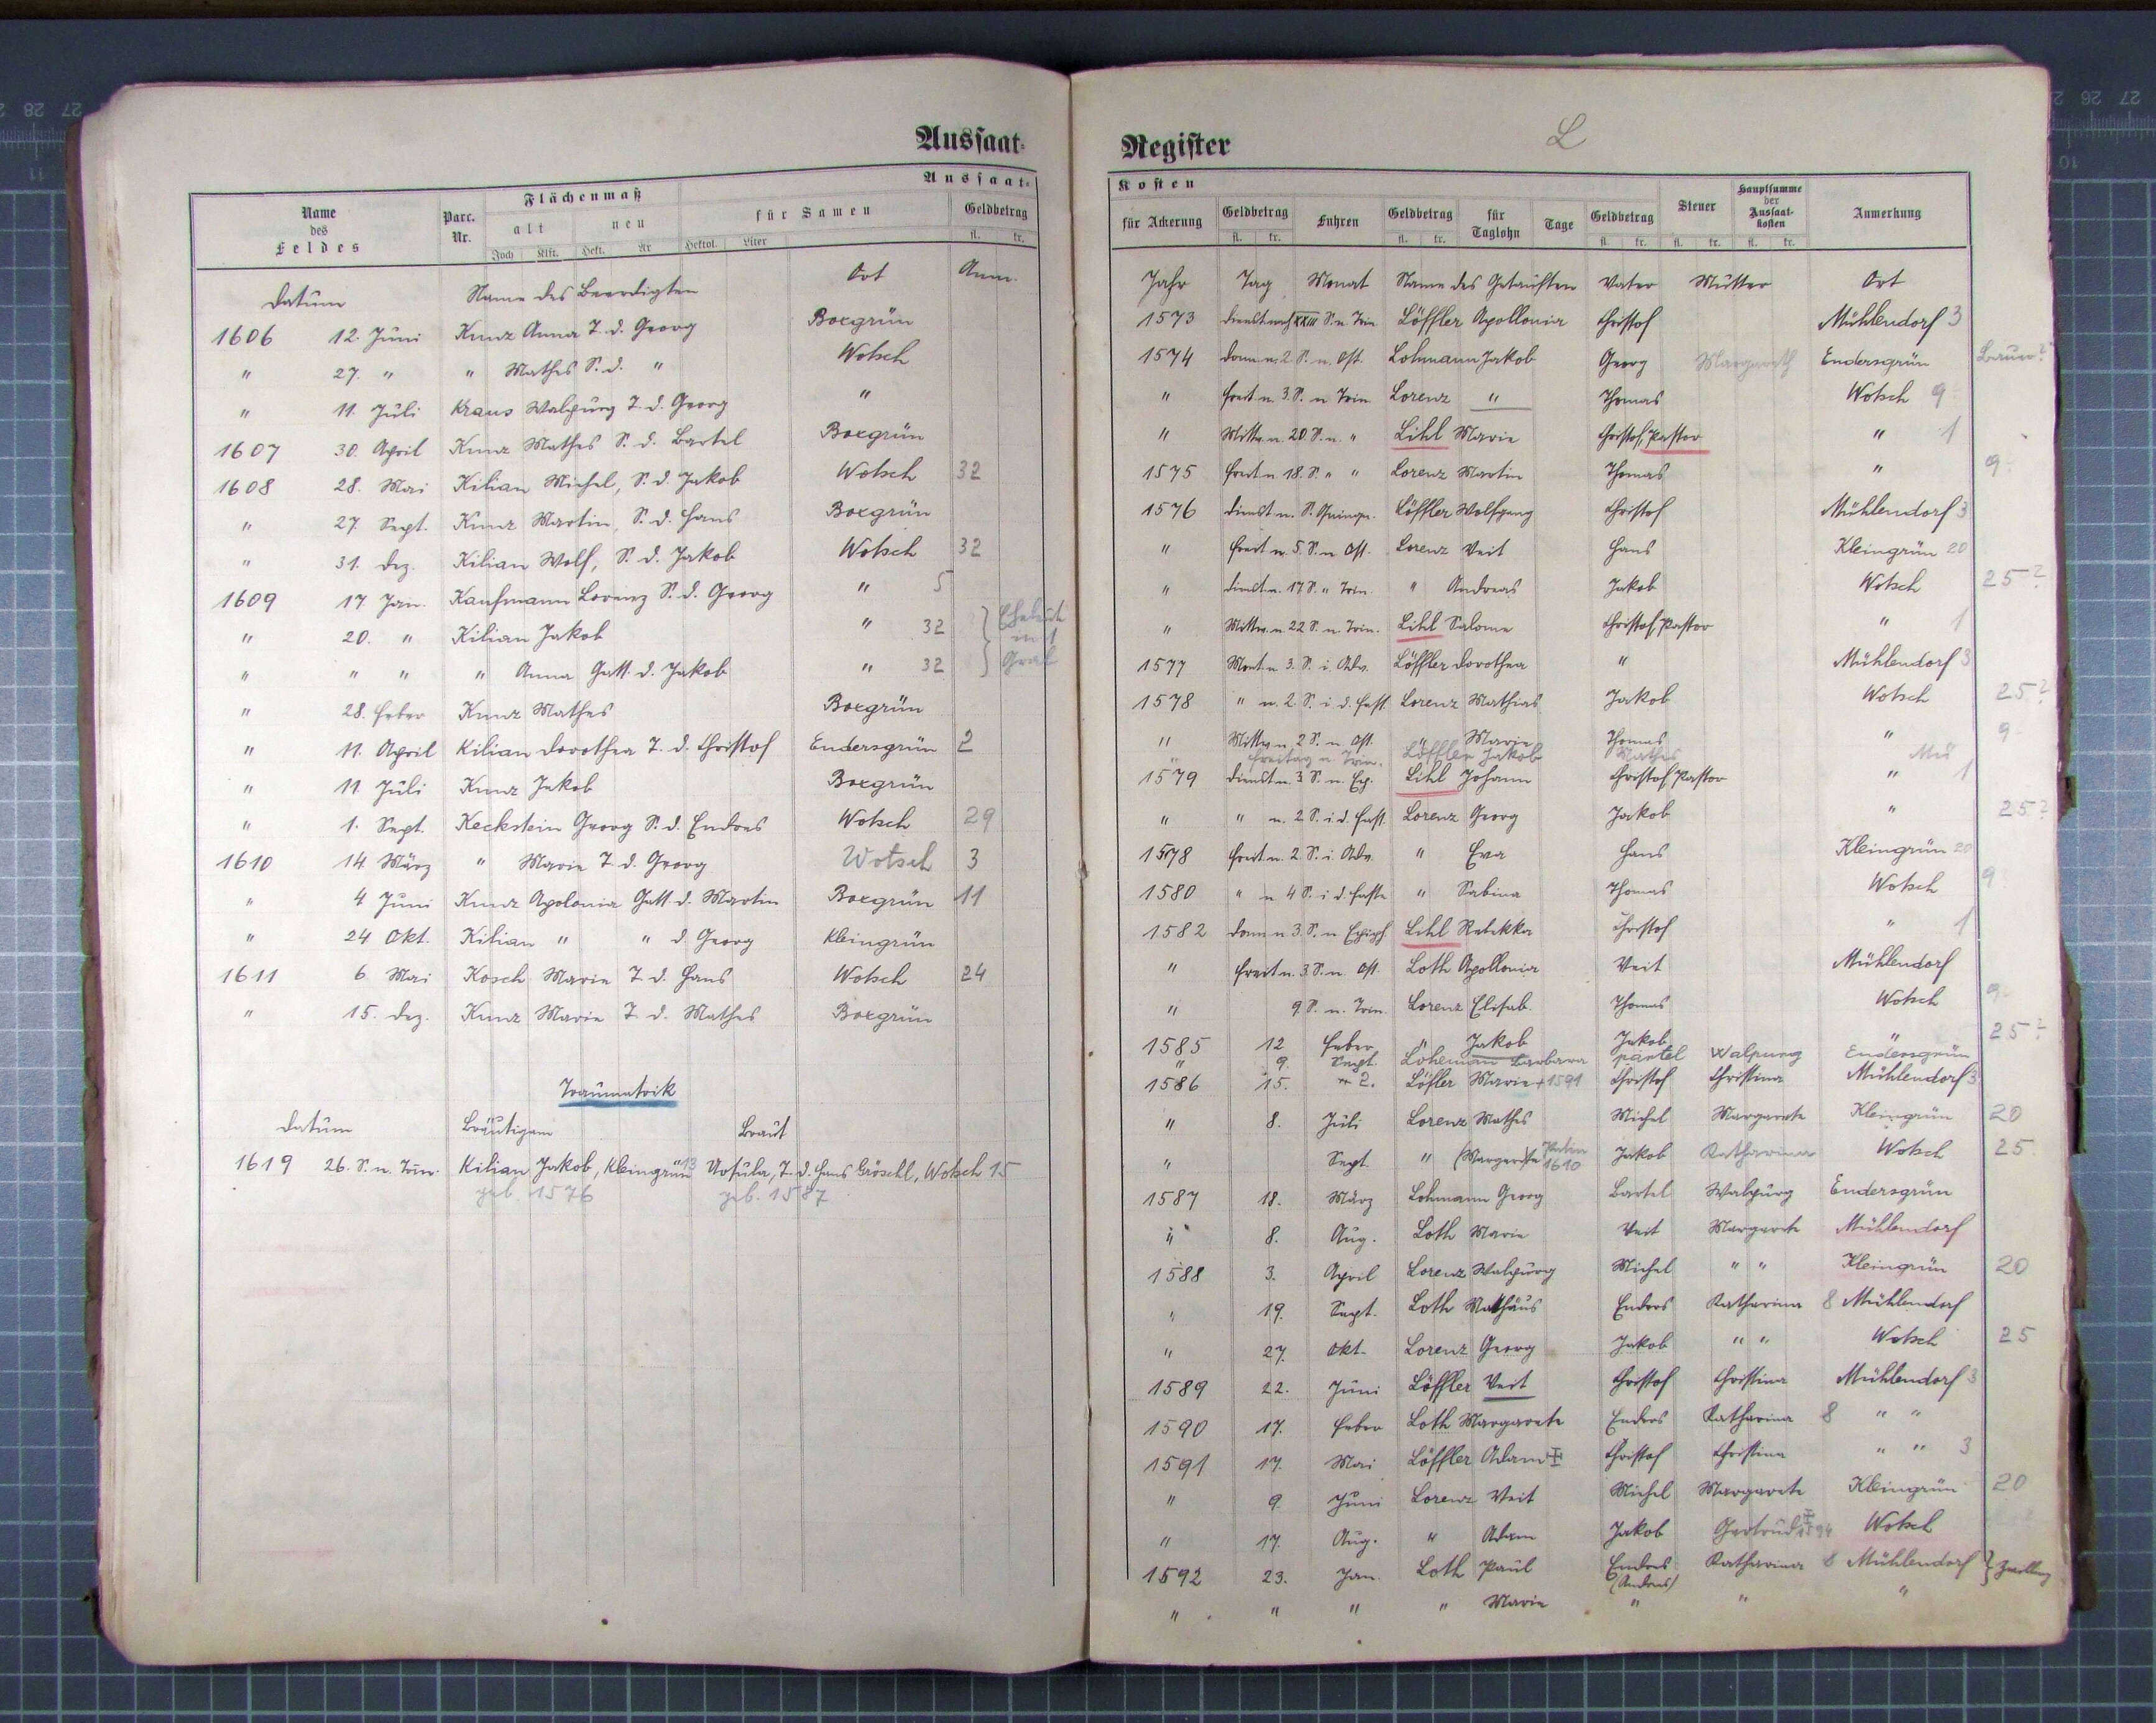 Aussaat-
Aussaat-
Name des Feldes
Parc. Nr.
Flächenmaß
alt neu
Joch Klft. Hekt. Ar
für Samen
Hektol. Liter
Geldbetrag
fl. kr.
Datum Name des Beerdigten Ort Anm.
1606 12. Juni Kunz Anna T. d. Georg Boxgrün
" 27. " " Mathes S. d. " Wotsch
" 11. Juli Kraus Walpurg T. d. Georg "
1607 30. April Kunz Mathes S. d. Bartel Boxgrün
1608 28. Mai Kilian Michel, S. d. Jakob Wotsch 32
" 27. Sept. Kunz Martin, S. d. Hans Boxgrün
" 31. Dez. Kilian Wolf, S. d. Jakob Wotsch 32
1609 17. Jan. Kaufmann Lorenz S. d. Georg " 5
" 20. " Kilian Jakob " 32 } Eheleute
" " " " Anna Gatt. d. Jakob " 32 } Grab
" 28. Feber Kunz Mathes Boxgrün
" 11. April Kilian Dorothea T. d. Christof Endersgrün 2
" 11. Juli Kunz Jakob Boxgrün
" 1. Sept. Keckstein Georg S. d. Endres Wotsch 29
1610 14 März " Marie T. d. Georg Wotsch 3
" 4 Juni Kunz Apolonia Gatt. d. Martin Boxgrün 11
" 24 Okt. Kilian " " d. Georg Kleingrün
1611 6. Mai Kosch Marie T. d. Hans Wotsch 24
" 15. Dez. Kunz Marie T. d. Mathes Boxgrün
Traumatrik
Datum Bräutigam Braut
1619 26. S. n. Trin. Kilian Jakob, Kleingrün 13 Ursula, T. d. Hans Gröschl, Wotsch 15
geb. 1576 geb. 1587
Register L
Kosten
für Ackerung
Geldbetrag
fl. kr.
Fuhren
Geldbetrag
fl. kr.
für Taglohn
Tage
Geldbetrag
fl. kr.
Steuer
fl. kr.
Hauptsumme der Aussaat-kosten
fl. kr.
Anmerkung
Jahr Tag Monat Name des Getauften Vater Mutter Ort
1573 Dienst. nach XXIII S. n. Trin. Löffler Apollonia Christof Mühlendorf 3
1574 Donn. n. 2. S. n. Ost. Lohmann Jakob Georg Margareth Endersgrün Bauer?
" Freit. n. 3. S. n Trin Lorenz " Thomas Wotsch 9
" Mittw. n. 20. S. n. " Lihl Marie Christof, Pastor " 1
1575 Freit. n. 18. S. " " Lorenz Martin Thomas " 9
1576 Dienst. n. S. Quinqu. Löffler Wolfgang Christof Mühlendorf 3
" Freit. n. 5. S. n Ost. Lorenz Veit Hans Kleingrün 20
" Dienst. n. 17. S. " Trin. " Andreas Jakob Wotsch 25?
" Mittw. n 22 S. n. Trin. Lihl Salome Christof, Pastor " 1
1577 Mont. n 3. S. i. Adv. Löffler Dorothea " Mühlendorf 3
1578 " n. 2. S. i. d. Fast. Lorenz Mathias Jakob Wotsch 25?
" Mittw. n 2 S. n. Ost. " Marie Thomas " 9
" Freitag n Trin. Löffler Jakob Mathes Mü
1579 Dienst n. 3 S. n. Ep. Lihl Johann Christof Pastor " 1
" " n. 2. S. i. d. Fast. Lorenz Georg Jakob " 25?
1578 Freit. n. 2. S. i. Adv. " Eva Hans Kleingrün 20
1580 " n 4 S. i. d. Faste " Sabina Thomas Wotsch 9
1582 Donn n 3. S. n Epiph Lihl Rebekka Christof " 1
" Freit n. 3 S. n. Ost. Loth Apollonia Veit Mühlendorf
" 9 S. n. Trin. Lorenz Elisab. Thomas Wotsch 9
1585 12 Feber " Jakob Jakob " 25?
" 9. Sept. Loheman Barbara Partel Walpurg Endersgrün
1586 15. " 2. Löfler Marie + 1591 Christof Christina Mühlendorf 3
" 8. Juli Lorenz Mathes Michel Margarete Kleingrün 20
" Sept. " (Margarete 1610 Jakob Katharina Wotsch 25
1587 18. März Lohmann Georg Bartel Walpurg Endersgrün
" 8. Aug. Loth Marie Veit Margarete Mühlendorf
1588 3. April Lorenz Walpurg Michel " " Kleingrün 20
" 19. Sept. Loth Mathäus Endres Katharina 8 Mühlendorf
" 27. Okt. Lorenz Georg Jakob " " Wotsch 25
1589 22. Juni Löffler Veit Christof Christina Mühlendorf 3
1590 17. Feber Loth Margarete Endres Katharina 8 " "
1591 17. Mai Löffler Adam ✠ Christof Christina " " 3
" 9. Juni Lorenz Veit Michel Margarete Kleingrün 20
" 17. Aug. " Adam Jakob Gertrud ✠ 1594 Wotsch
1592 23. Jan. Loth Paul Endres (Andreas) Katharina 8 Mühlendorf } Zwilling
" " " " Marie " " "